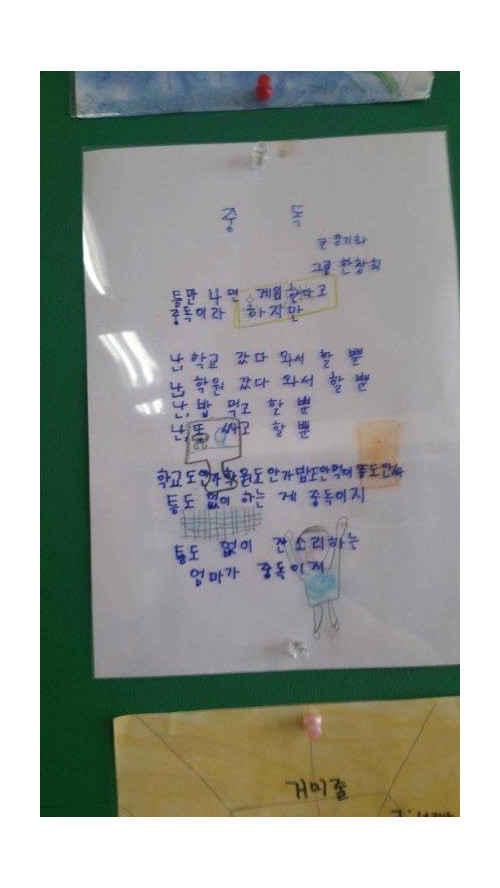 중 독
그림 한창희
틈만 나면 게임한다고
중독이라 하지만
난, 학교 갔다 와서 할 뿐
난, 학원 갔다 와서 할 뿐
난, 밥 먹고 할 뿐
난, 똥 싸고 할 뿐
학교도 안가 학원도 안가 밥도 안먹어 똥도 안싸
틈도 없이 하는 게 중독이지
틈도 없이 잔소리하는
엄마가 중독이지
거미줄